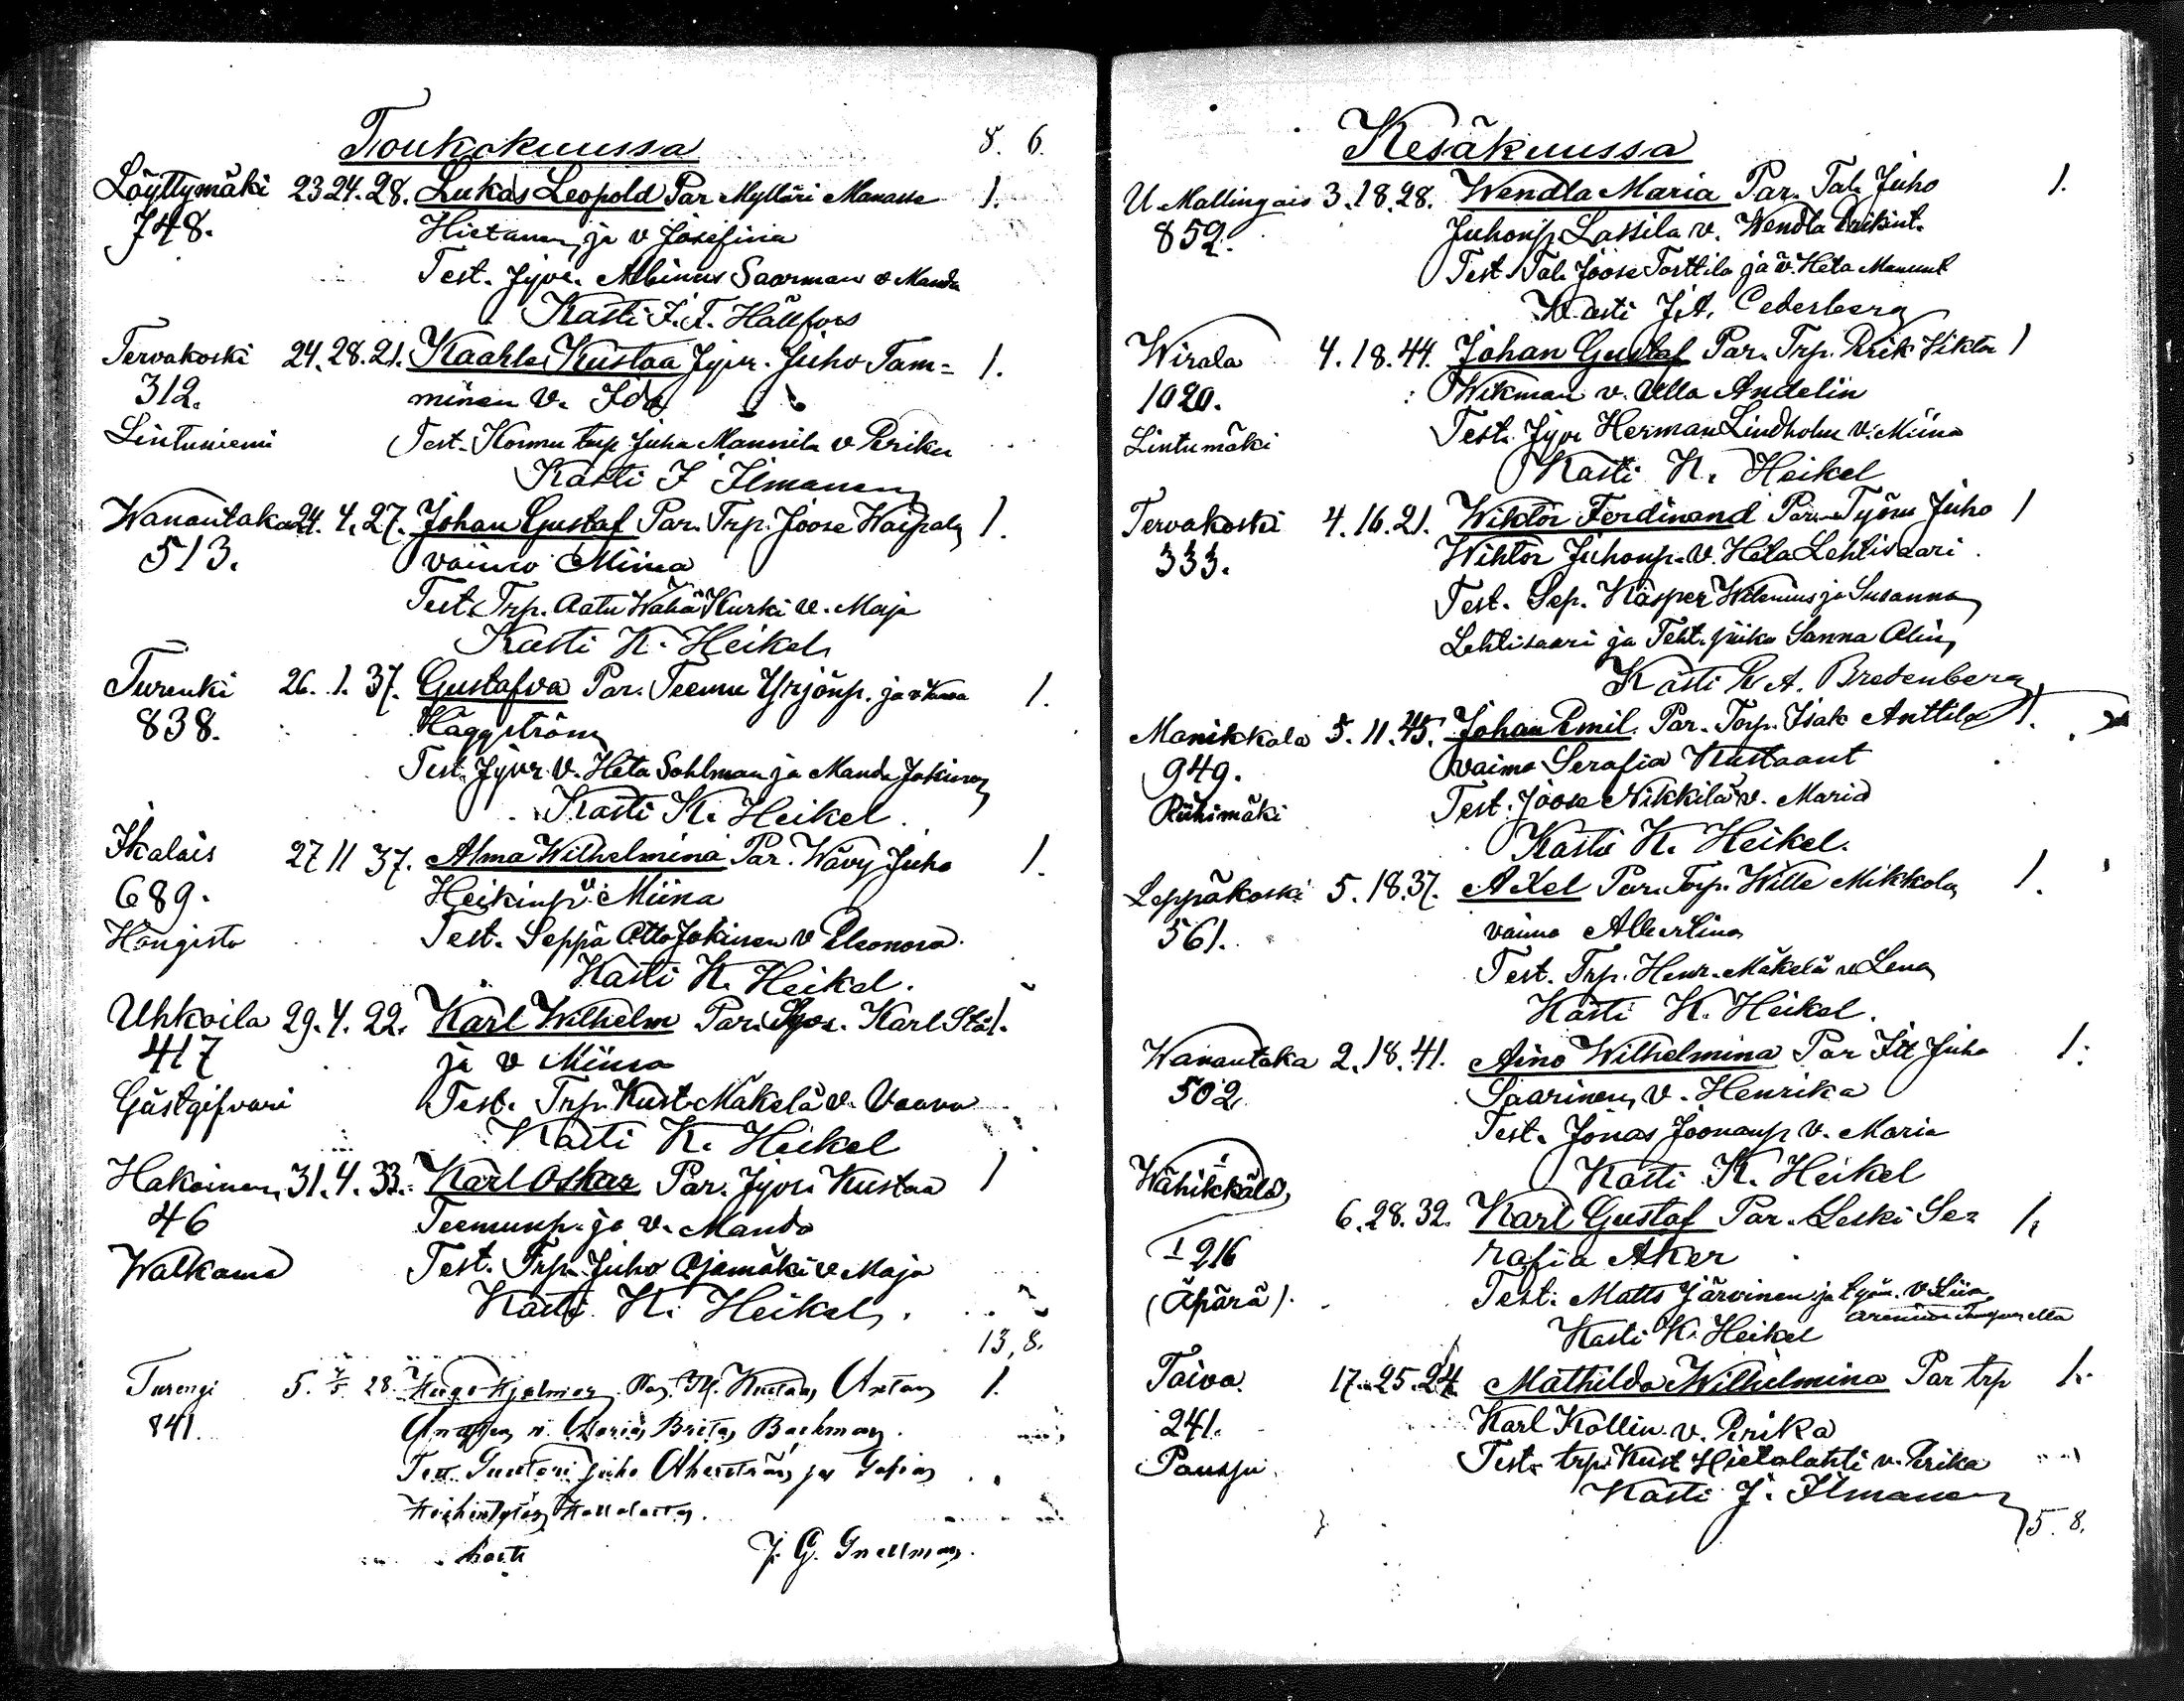 Toukokuussa 8. 6.
Löyttymäki 23 24. 28. Lukas Leopold Par Mylläri Manasse 1.
748. Hietanen ja v Josefina
Test. Jyvr. Albinus Saarman v Manda
Kasti F. T. Hällfors
Tervakoski 24. 28. 21. Kaahle Kustaa Jyvr. Juho Tam= 1.
312. minen v. Ida
Lintuniemi Test. Kormu trp Juha Mannila v Eriku
Kasti J Ilmanen
Wanantaka 24. 4. 27. Johan Gustaf Par. Trp. Joose Waipala 1.
513. vaimo Miina
Test. Trp. Aatu Wähä Kurki v. Maja
Kasti K. Heikel
Turenki 26. 1. 37. Gustafva Par. Teemu Yrjönp. ja v 1.
838. Häggström
Test. Jyvr. v. Heta Sohlman ja Manda Jokinen
Kasti K. Heikel.
Ikalais 27 11 37. Alma Wilhelmina Par. Wävy Juho 1.
689. Heikinp v. Miina
Hongisto Test. Seppä Otto Jokinen v Eleonora.
Kasti K. Heikel.
Uhkoila 29. 4. 22. Karl Wilhelm Par. Jyvr. Karl Stål 1.
417 ja v Miina
Gästgifvari Test. Trp. Kust Mäkelä v. Vaava
Kasti K. Heikel
Hakoinen 31. 4. 33. Karl Oskar Par. Jyvr. Kustaa 1
46 Teemunp. ja v. Manda
Walkama Test. Trp. Juho Ojamäki v Maja
Kasti K. Heikel.
13, 8.
Turengi 5. 7/5 28. Hugo Hjalmar 1.
841. v. Maria Brita Backman.
Test. Juho ja Sofia
Kasti J. G. Snellman.
Kesäkuussa
U. Mallingais 3. 18. 28. Wendla Maria Par. Tal. Juho 1.
852. Juhonp. Lassila v. Wendla Erikint.
Test. Tal. Joose Torttila ja v. Heta Manunt
Kasti J. A. Cederberg
Wirala 4. 18. 44. Johan Gustaf Par. Trp. Erik Viktor 1
1020. Wikman v. Ulla Andelin
Lintumäki Test. Jyvr Herman Lindholm v. Miina
Kasti K. Heikel
Tervakoski 4. 16. 21. Wiktor Ferdinand Par. Työm Juho 1
333. Wihtor Juhonp. v. Heta Lehtisaari.
Test. Sep. Käsper Wilenius ja Susanna
Lehtisaari ja Teht. piika Sanna Alin
Kasti R. A. Bredenberg
Monikkala 5. 11. 45. Johan Emil. Par. Torp. Isak Anttila 1.
949. vaimo Serafia Kustaant
Riihimäki Test. Joose Nikkilä v. Maria
Kasti K. Heikel.
Leppäkoski 5. 18. 37. Axel Par. Torp. Wille Mikkola 1.
561. vaimo Albertina
Test. Trp. Henr. Mäkelä v. Lena
Kasti K. Heikel.
Wanantaka 2. 18. 41. Aino Wilhelmina Par Itt Juha 1.
502 Saarinen v. Henrika
Test. Jonas Joonanp v. Maria
Kasti K. Heikel
Wähikkälä
6. 28. 32. Karl Gustaf Par. Leski Se= 1.
I 216 rafia Aker
(Äpärä). Test. Matts Järvinen ja v Liia
Kasti K. Heikel
Toivo. 17. 25. 24. Mathilda Wilhelmina Par trp 1.
241. Karl Kollin v. Erika
Pausju Test. trp. Kust Hietalahti v. Erika
Kasti J. Ilmanen
5. 8.